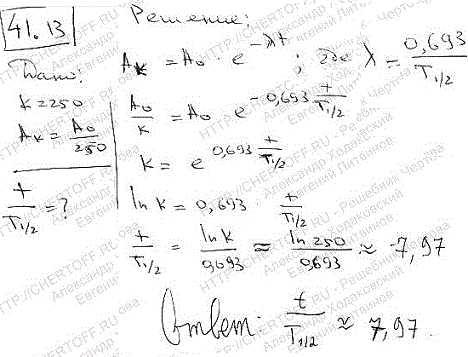 41.13
Решение:
Дано:
k = 250
Aₖ = A₀/250
t/T₁/₂ = ?
Aₖ = A₀ · e^(-λt) ; где λ = 0,693/T₁/₂
A₀/k = A₀ e^(-0,693 t/T₁/₂)
k = e^(0,693 t/T₁/₂)
ln k = 0,693 · t/T₁/₂
t/T₁/₂ = ln k/0,693 ≈ ln 250/0,693 ≈ 7,97
Ответ: t/T₁/₂ ≈ 7,97
HTTP://CHERTOFF.RU - Решебник Чертова
Александр Ходаковский
Евгений Литвинков